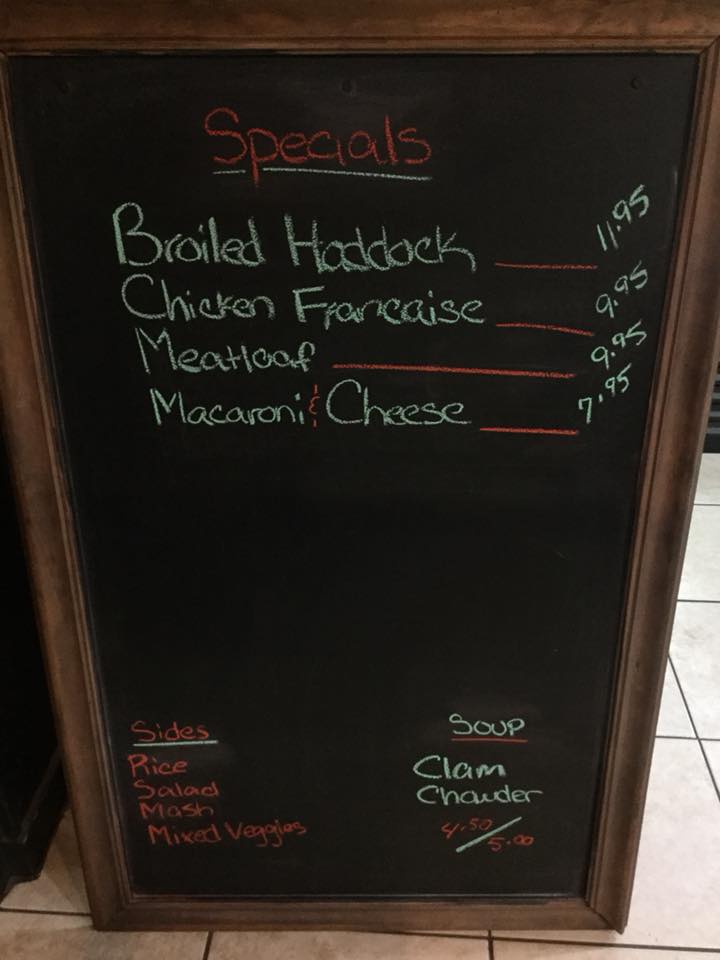 Specials
Broiled Haddock ____ 11.95
Chicken Francaise ____ 9.95
Meatloaf ____ 9.95
Macaroni & Cheese ____ 7.95
Sides
Rice
Salad
Mash
Mixed Veggies
Soup
Clam
Chowder
4.50/5.00